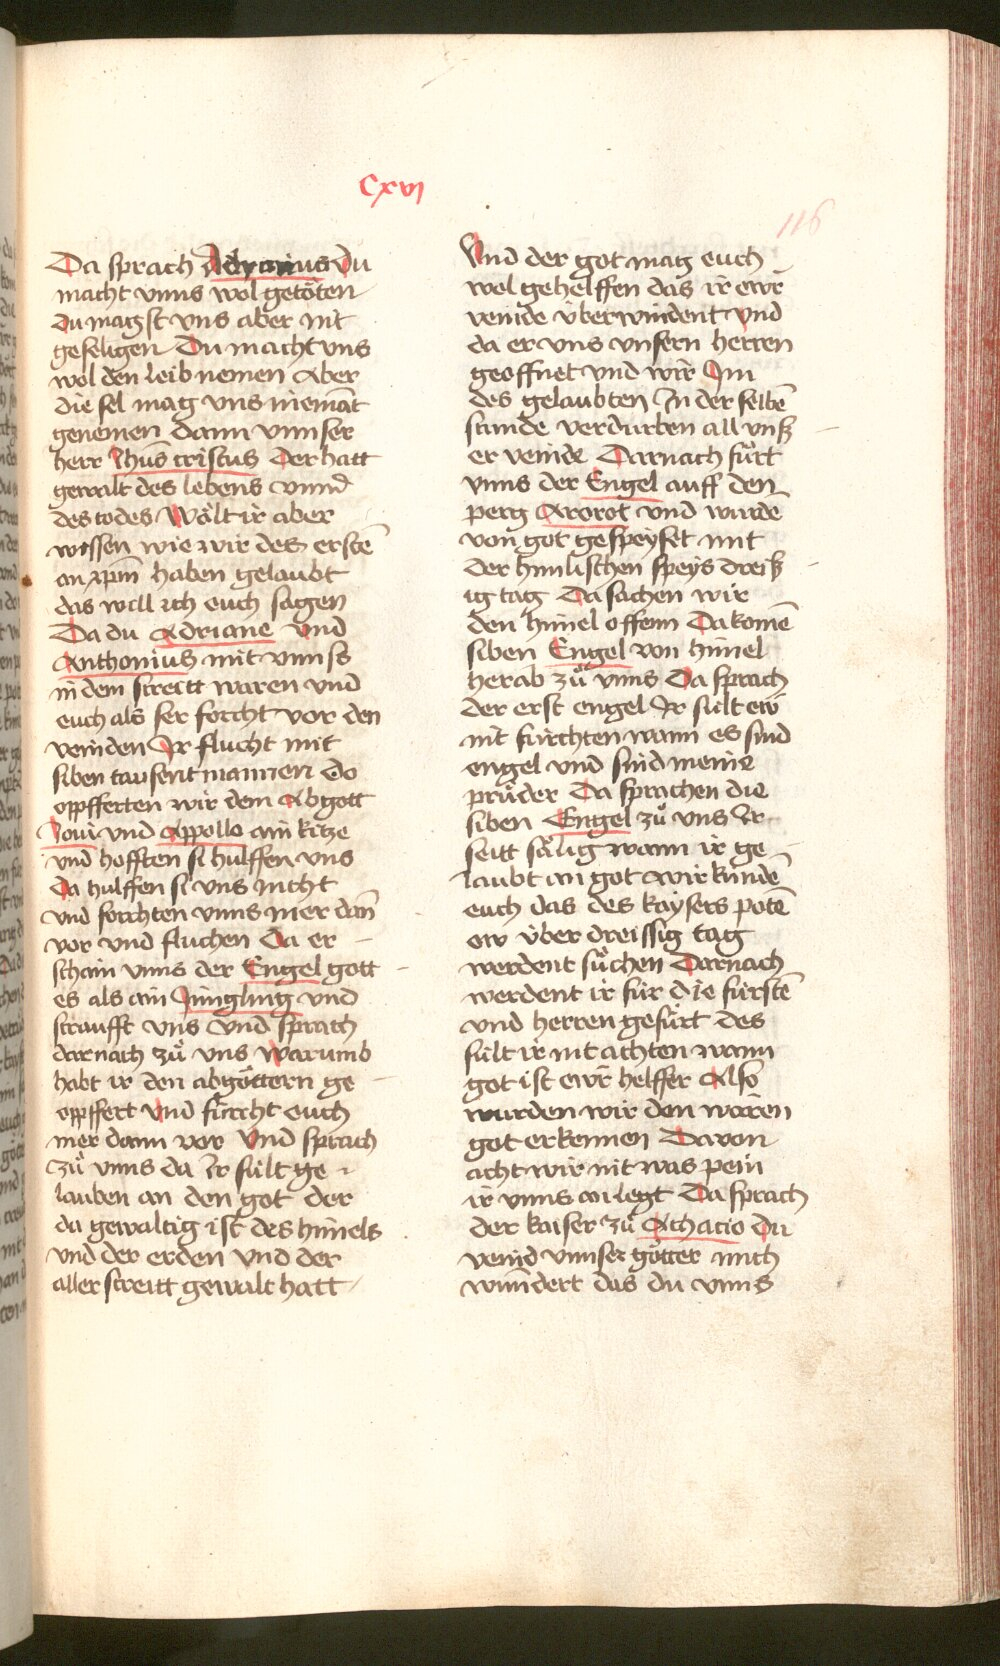 Cxvi
116
Da sprach Du
macht vnns wol getöten
du magst vns aber nit
geseligen Du macht vns
wol den leib nemen Aber
die sel mag vns niemāt
genemen dann vnnser
herr Jhūs cristus Der hatt
gewalt des lebens vnnd
des todes Wält ir aber
wissen wie wir des erstē
an xpm̄ haben gelaubt
das will ich euch sagen
Da du Adriane vnd
Anthonius mit vnns
in dem streitt waren vnd
euch als ser forcht vor den
veinden Ir flucht mit
siben tausent mannen Do
oppfferten wir dem Abgott
Joui vnd Appollo ain kitze
vnd hofften si hulffen vns
Da hulffen si vns nicht
vnd forchten vnns mer dan̄
vor vnd fluchen Da er
schain vnns der Engel gott
es als ain Jüngling vnd
straufft vns vnd sprach
darnach zů vns warumb
habt ir den abgöttern ge
oppffert vnd fürcht euch
mer dann vor Vnd sprach
zů vnns da Ir sült ge
lauben an den got der
da gewaltig ist des himels
vnd der erden vnd der
aller streitt gewalt hatt
Vnd der got mag euch
wol gehelffen das ir ewr
veinde überwindent vnd
da er vns vnsern herren
geoffnet vnd wir Im
des gelaubten In der selbē
stunde verdurben all vnß
er veinde Darnach fürt
vnns der Engel auff den
perg Ararot vnd wurde
von got gespeyset mit
der himlischen speys dreiß
ig tag Da sachen wir
den himel offenn Da komē
siben Engel von himel
herab zů vnns Da sprach
der erst engel Ir sült ew
nit fürchten wann es sind
engel vnd sind meine
prüder Da sprachen die
siben Engel zů vns Ir
seitt sälig wann ir ge
laubt an got wir kündē
euch das des kaysers potē
ew über dreissig tag
werdent süchen Darnach
werdent ir für die fürstē
vnd herren gefürt des
sült ir nit achten wann
got ist ewr helffer Also
wurden wir den waren
got erkennen Davon
acht wir nit was pein
ir vnns an legt Da sprach
der kaiser zů Achacio Du
veind vnnser götter mich
wundert das du vnns